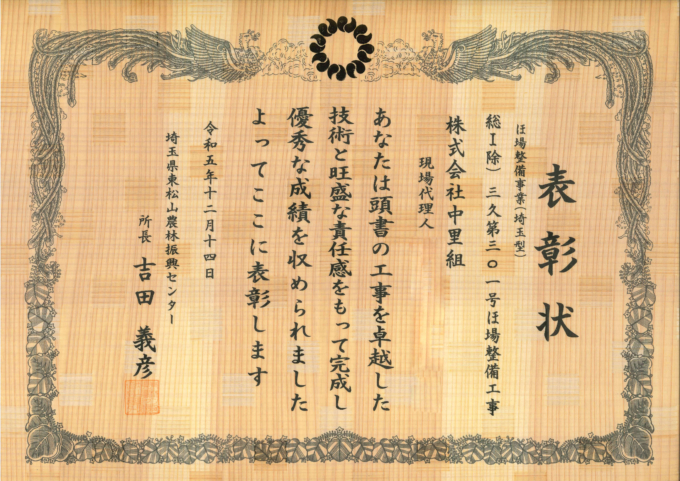 表彰状
ほ場整備事業(埼玉型)
総Ⅰ除)三久第三〇一号ほ場整備工事
株式会社中里組
現場代理人
あなたは頭書の工事を卓越した
技術と旺盛な責任感をもって完成し
優秀な成績を収められました
よってここに表彰します
令和五年十二月十四日
埼玉県東松山農林振興センター
所長 吉田義彦